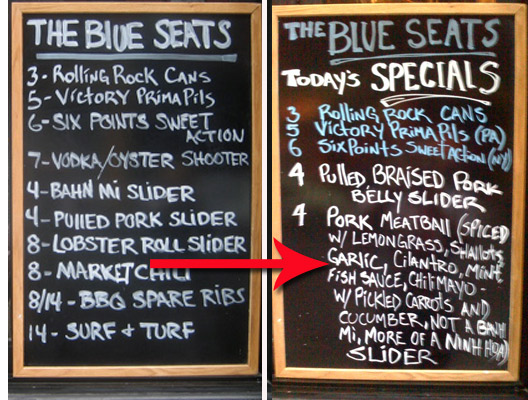 THE BLUE SEATS
3 - ROLLING ROCK CANS
5 - VICTORY PRIMA PILS
6 - SIX POINTS SWEET
ACTION
7 - VODKA/OYSTER SHOOTER
4 - BAHN MI SLIDER
4 - PULLED PORK SLIDER
8 - LOBSTER ROLL SLIDER
8 - MARKET CHILI
8/14 - BBQ SPARE RIBS
14 - SURF & TURF
THE BLUE SEATS
TODAY'S SPECIALS
3 ROLLING ROCK CANS
5 VICTORY PRIMA PILS (PA)
6 SIX POINTS SWEET ACTION (NY)
4 PULLED BRAISED PORK
BELLY SLIDER
4 PORK MEATBALL (SPICED
W/ LEMONGRASS, SHALLOTS
GARLIC, CILANTRO, MINT,
FISH SAUCE, CHILI MAYO -
W/ PICKLED CARROTS AND
CUCUMBER, NOT A BAHN
MI, MORE OF A NINH HOA)
SLIDER